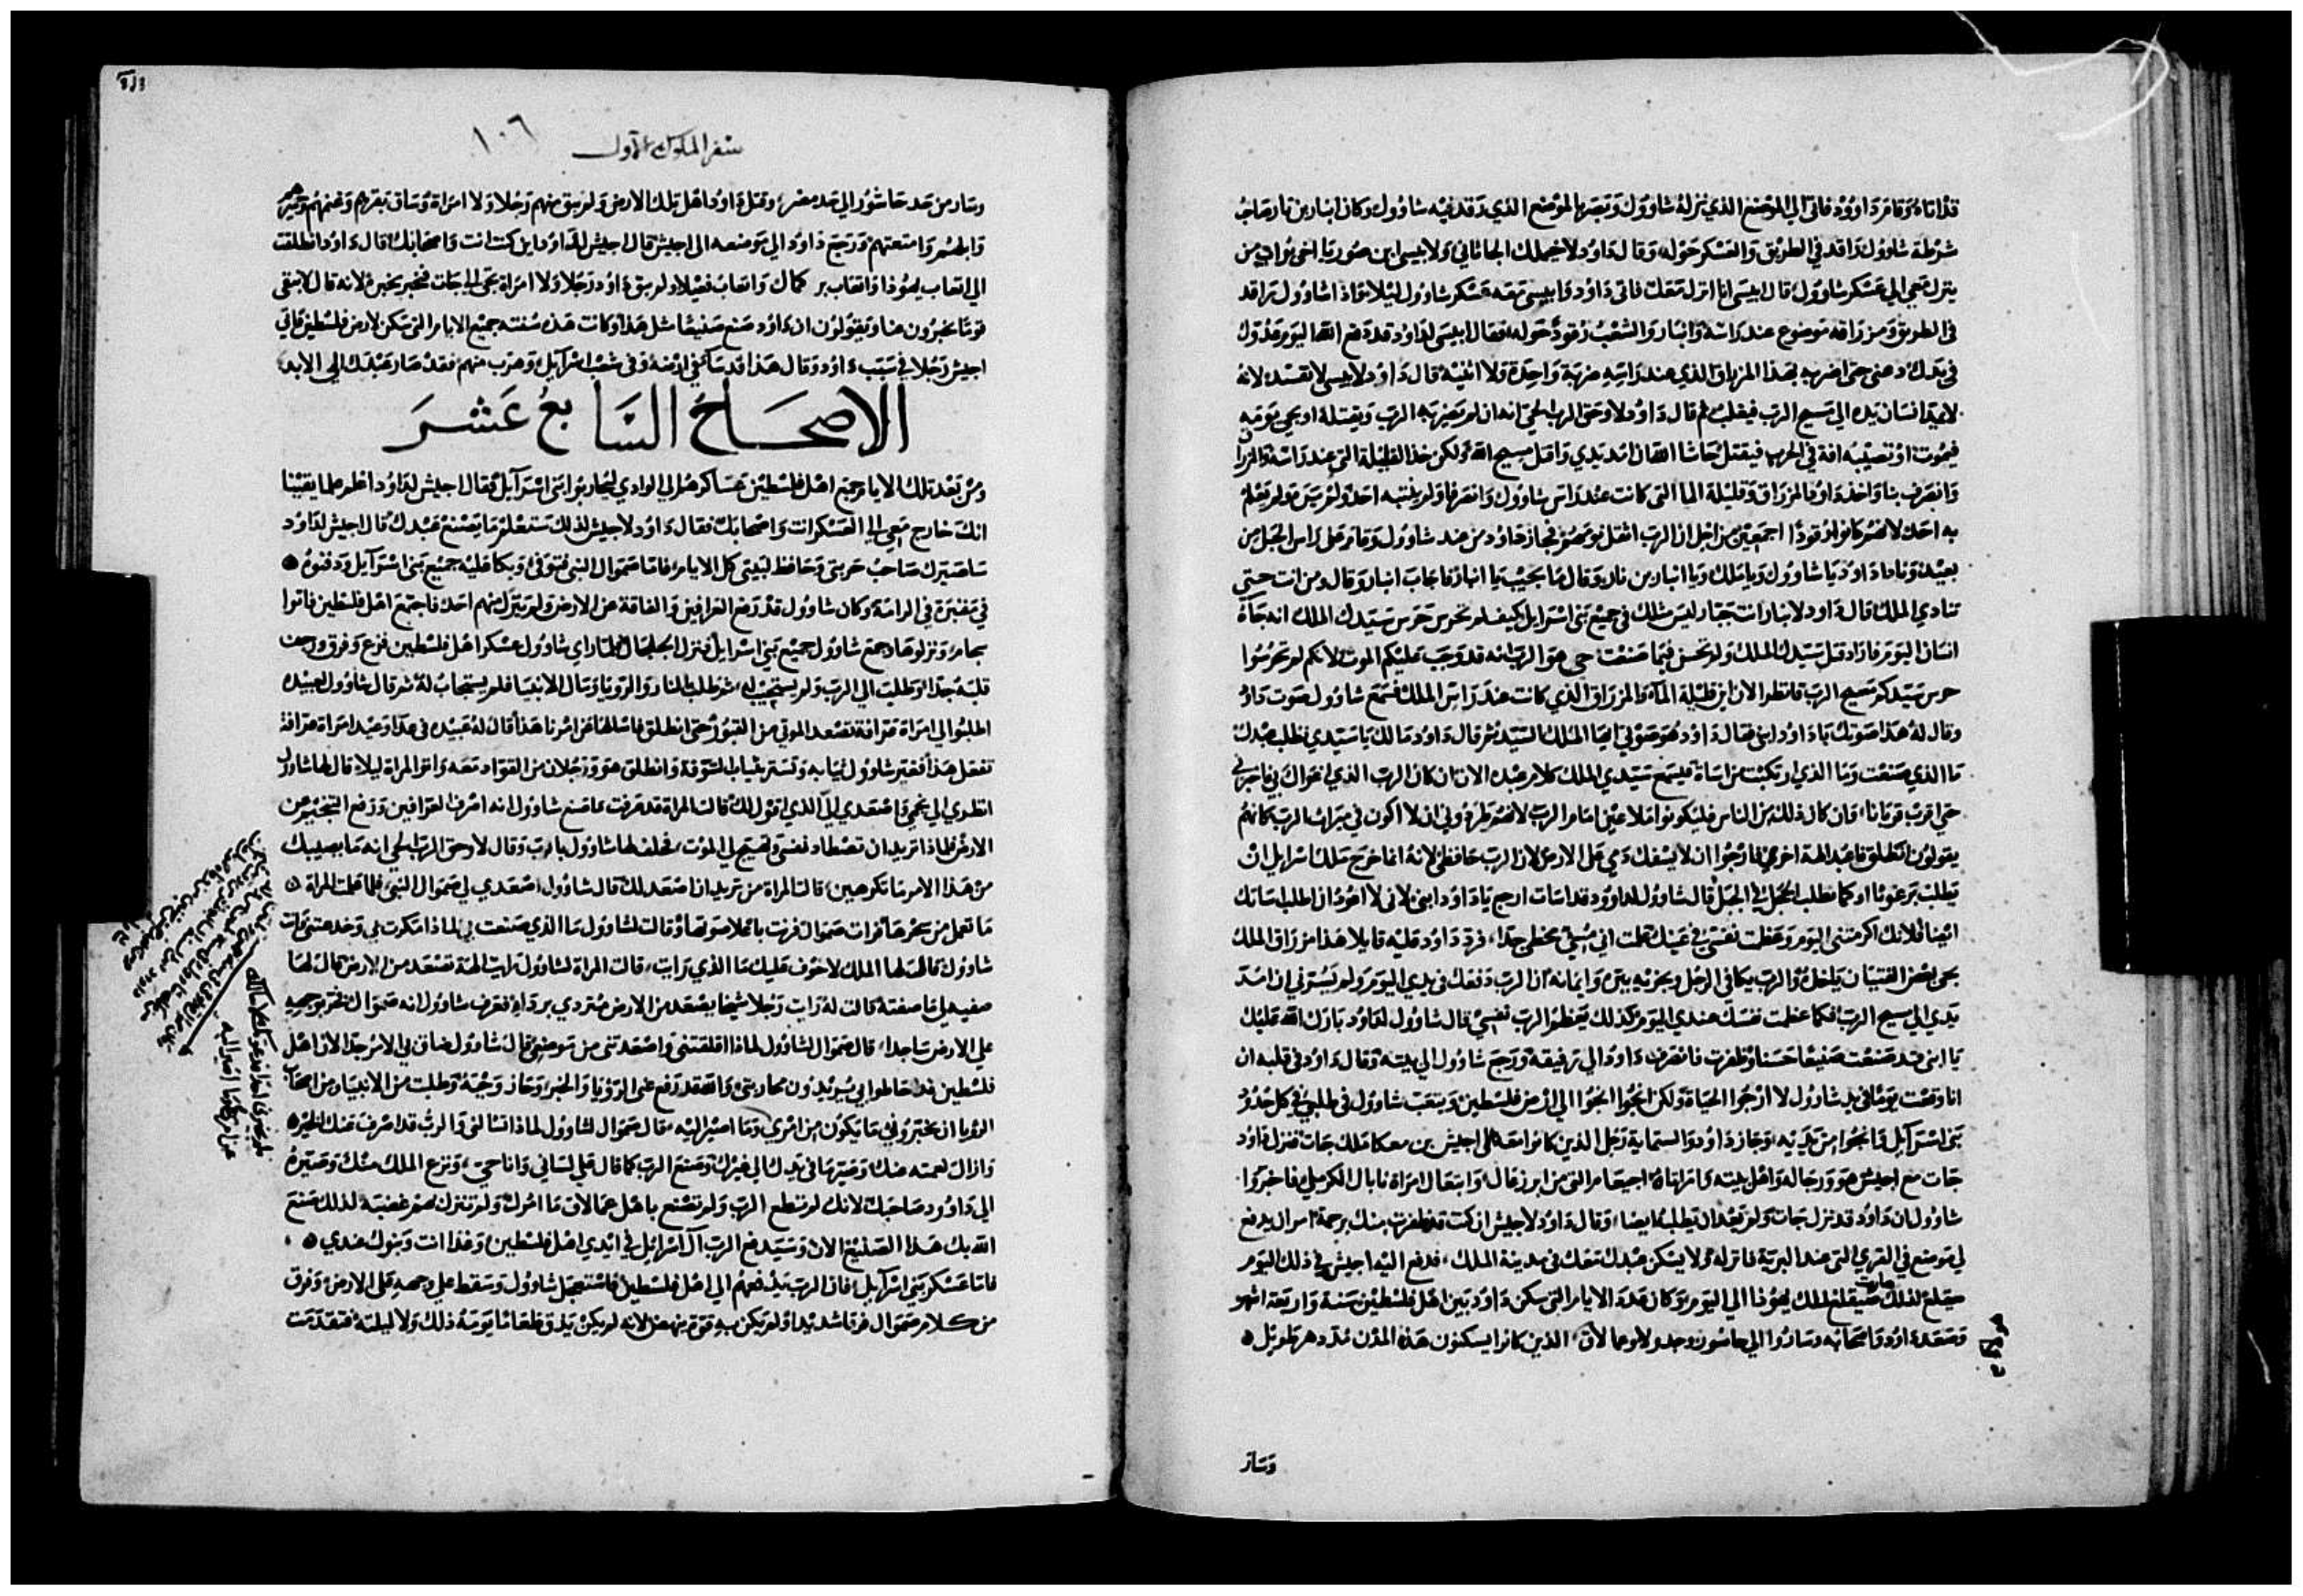 قد اتاه وقام داوود فاتى الى الموضع الذي نزله شاوول وبصر بالموضع الذي رقد فيه شاوول وكان ابنار بن نار صاحب
شرطة شاوول راقد في الطريق والعسكر حوله وقال داود لاخيملك الحاثاني ولابيسى ابن صوريا اخى يواب من
ينزل معي الى عسكر شاوول قال ابيسى انا انزل معك فاتى داود وابيسى معه عسكر شاوول ليلا واذا شاوول راقد
في الطريق ومزراقه موضوع عند راسه وابنار والشعب رقود حوله فقال ابيسى لداود قد دفع الله اليوم عدوك
في يدك دعنى حتى اضربه بهذا المزراق الذي عند راسه ضربة واحدة ولا اثنيه قال داود لابيسى لا تفسده لانه
لا يمد انسان يده الى مسيح الرب فيفلت ثم قال داود لا وحق الرب الحي انه ان لم يضربه الرب ويقتله او يجي يومه
فيموت او تصيبه افة في الحرب فيقتل حاشا لله ان امد يدي واقتل مسيح الله ولكن خذ القليلة التى عند راسه والمزراق
وانصرف بنا واخذ داود المزراق وقليلة الما التى كانت عند راس شاوول وانصرفا ولم ينتبه احد ولم يرى ولم يعلم
به احد لانهم كانوا رقودا اجمعين من اجل ان الرب اثقل نومهم فجاز داود من عند شاوول وقام على راس الجبل من
بعيد ونادا داود يا شاوول ويا ملك ويا ابنار بن نار وقال ما تجيب يا ابنار فاجاب ابنار وقال ومن انت حتى
تنادي الملك قال داود لابنار انت جبار ليس مثلك في جميع بنى اسرايل كيف لم تحرس حرس سيدك الملك انه جاه
انسان اليوم فاراد قتل سيدك الملك ولم تحسن فيما صنعت حي هو الرب انه قد وجب عليكم الموت لانكم لم تحرسوا
حرس سيدكم مسيح الرب فانظر الان اين قليلة الماء والمزراق الذي كانت عند راس الملك فسمع شاوول صوت داود
وقال له هذا صوتك يا داود ابنى فقال داود هو صوتي ايها الملك السيد ثم قال داود مالك يا سيدي تطلب عبدك
ما الذي صنعت وما الذي ارتكبت من اساة فيسمع سيدي الملك كلام عبده الان ان كان الرب الذي اغواك بي فاخبرني
حتى اقرب قربانا وان كان ذلك من الناس فليكونوا ملاعين امام الرب لانهم طردوني ان لا اكون في ميراث الرب كانهم
يقولون انطلق فاعبد الهة اخرى فارجوا ان لا يسفك دمي على الارض لان الرب حافظي لانه انما خرج ملك اسرايل ان
يطلب برغوثا او كما يطلب الحجل في الجبل قال شاوول لداوود قد اسات ارجع يا داود ابنى لانى لا اعود ان اطلب اساتك
ايضا لانك اكرمتنى اليوم وعظمت نفسى في عينك علمت انى مسيى مخطى جدا فرد داود عليه قايلا هذا مزراق الملك
يجى بعض الفتيان ياخذه والرب يكافى الرجل ويجزيه ببره وايمانه ان الرب دفعك في يدي اليوم ولم يسرني ان امد
يدي الى مسيح الرب فكما عظمت نفسك عندي اليوم كذلك يعظم الرب نفسي قال شاوول لداود بارك الله عليك
يا ابنى قد صنعت صنيعا حسنا وظفرت فانصرف داود الى رفيقه ورجع شاوول الى بيته وقال داود في قلبه ان
انا وقعت يوما في يد شاوول لا ارجوا الحياة ولكن انجوا انجوا الى ارض فلسطين ويتعب شاوول في طلبي في كل حدود
بنى اسرآيل وانجوا من يديه وجاز داود والستماية رجل الذين كانوا معه الى اجيش بن معكا ملك جات فنزل داود
جات مع اجيش هو ورجاله واهل بيته وامراتاه اجيعام التى من ايزرعال وابيغال امراة نابال الكرملي فاخبروا
شاوول ان داود قد نزل جات ولم يعد ان يطلبه ايضا وقال داود لاجيش ان كنت قد ظفرت منك برحمة امر ان يدفع
لي موضع في القرى التى عند البرية فانزله ولا يسكن عبدك معك في مدينة الملك فدفع اليه اجيش في ذلك اليوم
صيقلغ لذلك صارت صيقلغ لملك يهوذا الى اليوم وكان عدد الايام التى سكن داود بين اهل فلسطين سنة واربعة اشهر
وصعد داود واصحابه وساروا الى جاسور وجدولا وعمالاق الذين كانوا يسكنون هذه المدن
وسار
سفر الملوك الاول
١٠٦
وسار من حد حاشور الى حد مصر وقتل داود اهل تلك الارض ولم يبق منهم رجلا ولا امراة وساق بقرهم وغنمهم وحميرهم
والجمر وامتعتهم ورجع داود الى موضعه الى اجيش قال اجيش لداود اين كنت انت واصحابك قال داود انطلقت
الى اتعاب يهوذا واتعاب بر كمال واتعاب فعيلا ولم يبق داود رجلا ولا امراة تجى الى جات فتخبر بخبره لانه قال لا يبقى
قوما يخبرون عنا ويقولون ان داود صنع صنيعا مثل هذا وكانت هذه سنته جميع الايام التى سكن لارض فلسطين فاتى
اجيش رجلا في سبب داود وقال هذا قد سآ في ارضه وفي شعب اسرآيل وهرب منهم فقد صار عبدك الى الابد
الاصحاح السابع عشر
ومن بعد تلك الايام جمع اهل فلسطين عساكرهم الى الوادي ليحاربوا بنى اسرآيل فقال اجيش لداود اعلم علما يقينا
انك خارج معي الى العسكر انت واصحابك فقال داود لاجيش لذلك ستعلم ما يصنع عبدك قال اجيش لداود
ساصيرك صاحب حربتى وحافظ لبيتى كل الايام فاما صموال النبى فتوفى وبكا عليه جميع بنى اسرآيل ودفنوه
في مقبرة في الرامة وكان شاوول قد رفع العرافين والفاقة عن الارض ولم يترك منهم احد فاجتمع اهل فلسطين فاتوا
بجام ونزلوها وجمع شاوول جميع بنى اسرايل فنزل الجلجال فلما راى شاوول عسكر اهل فلسطين فزع وفرق ورجف
قلبه جدا وطلب الى الرب ولم يستجيب له ثم طلب بالنار والرويا وسال الانبيا فلم يستجاب له ثم قال شاوول لعبيده
اطلبوا لي امراة عرافة تصعد الموتى من القبور حتى انطلق فاسالها عن امرنا هذا قال له عبيده في عذا وعبد امراة عرافة
تفعل هذا فغير شاوول ثيابه وتستر بثياب السوقة وانطلق هو ورجلان من القواد معه واتوا المراة ليلا قال لها شاوول
انظري الى نجمي واصعدي الي الذي اقول لك قالت المراة قد عرفت ما صنع شاوول انه اصرف العرافين ورفع التنجيم من
الارض فلماذا تريد ان تصطاد نفسى وتصيح لي الموت فحلف لها شاوول بالرب وقال لا وحق الرب الحي انه ما يصيبك
من هذا الامر ما تكرهين قالت المراة من تريد ان اصعد لك قال شاوول اصعدي لي صموال النبى فلما علمت المراة
ما تعمل من سحرها فرات صموال فرنت باعلا صوتها وقالت لشاوول ما الذي صنعت بي لماذا مكرت بي وخدعتنى وانت
شاوول قال لها الملك لا خوف عليك ما الذي رايت قالت المراة لشاوول رايت الهة تصعد من الارض قال لها
صفيه لي ما صفته قالت له رايت رجلا شيخا يصعد من الارض مرتدي برداء فعرف شاوول انه صموال فخر بوجهه
على الارض ساجدا قال صموال لشاوول لماذا اقلقتنى واصعدتنى من موضعى قال شاوول ضاق بي الامر جدا لان اهل
فلسطين قد احاطوا بي يريدون محاربتى والله قد رفع عنى الرؤيا والخبر وجاز وحيه وطلبت من الانبيا ومن اصحاب
الرؤيا ان يخبروني ما يكون من امري وما اصير اليه قال صموال لشاوول لماذا تسالنى والرب قد اصرف عنك الخير
وازال نعمته عنك وصيرها في يدك الى غيرك وصنع الرب كما قال على لسانى وانا حي ونزع الملك منك وصيره
الى داوود صاحبك لانك لم تطع الرب ولم تصنع باهل عمالاق ما امرك ولم تنزل بهم غضبه لذلك صنع
الله بك هذا الصنيع الان وسيدفع الرب آل اسرايل في ايدي اهل فلسطين وغدا انت وبنوك عندي
فاما عسكر بنى اسرآيل فان الرب يدفعهم الى اهل فلسطين فاستعجل شاوول وسقط على وجهه على الارض وفرق
من كلام صموال فرقا شديدا ولم يكن به قوة ينهض لانه لم يكن يذق طعاما يومه ذلك ولا ليلته فتقدمت